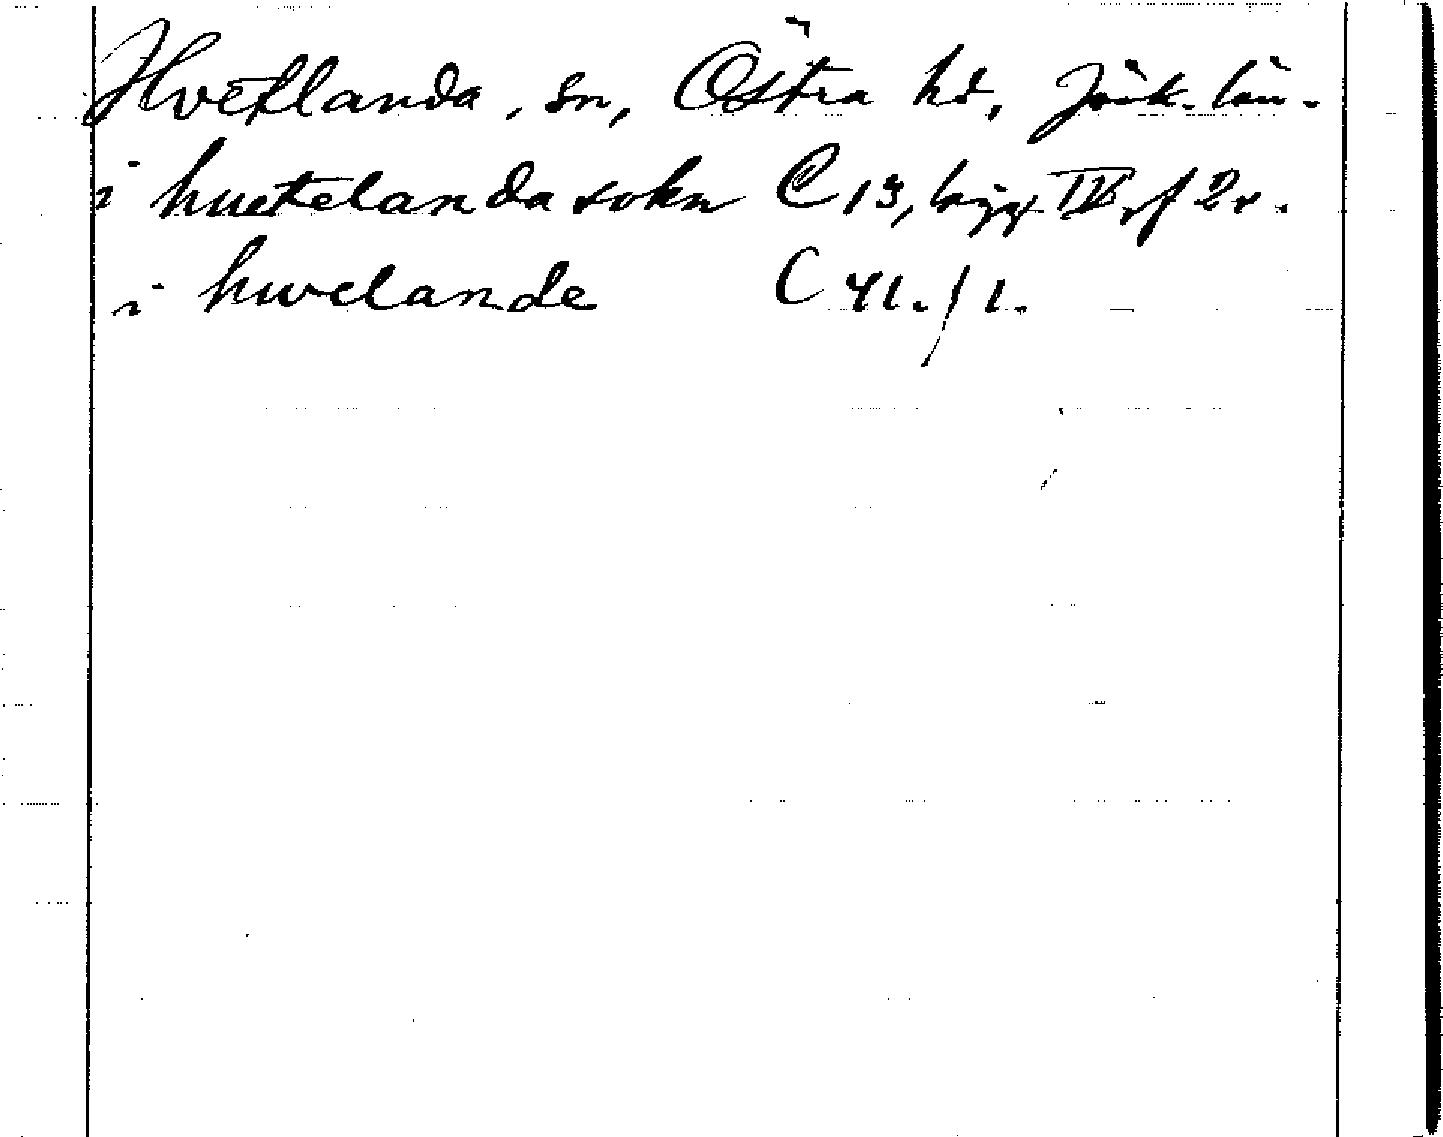 Hvetlanda, sn, Östra hd, Jönk. län.
i huetelanda sokn C 13, lägg IV, f 2r.
i hwelande C 41. f 1.